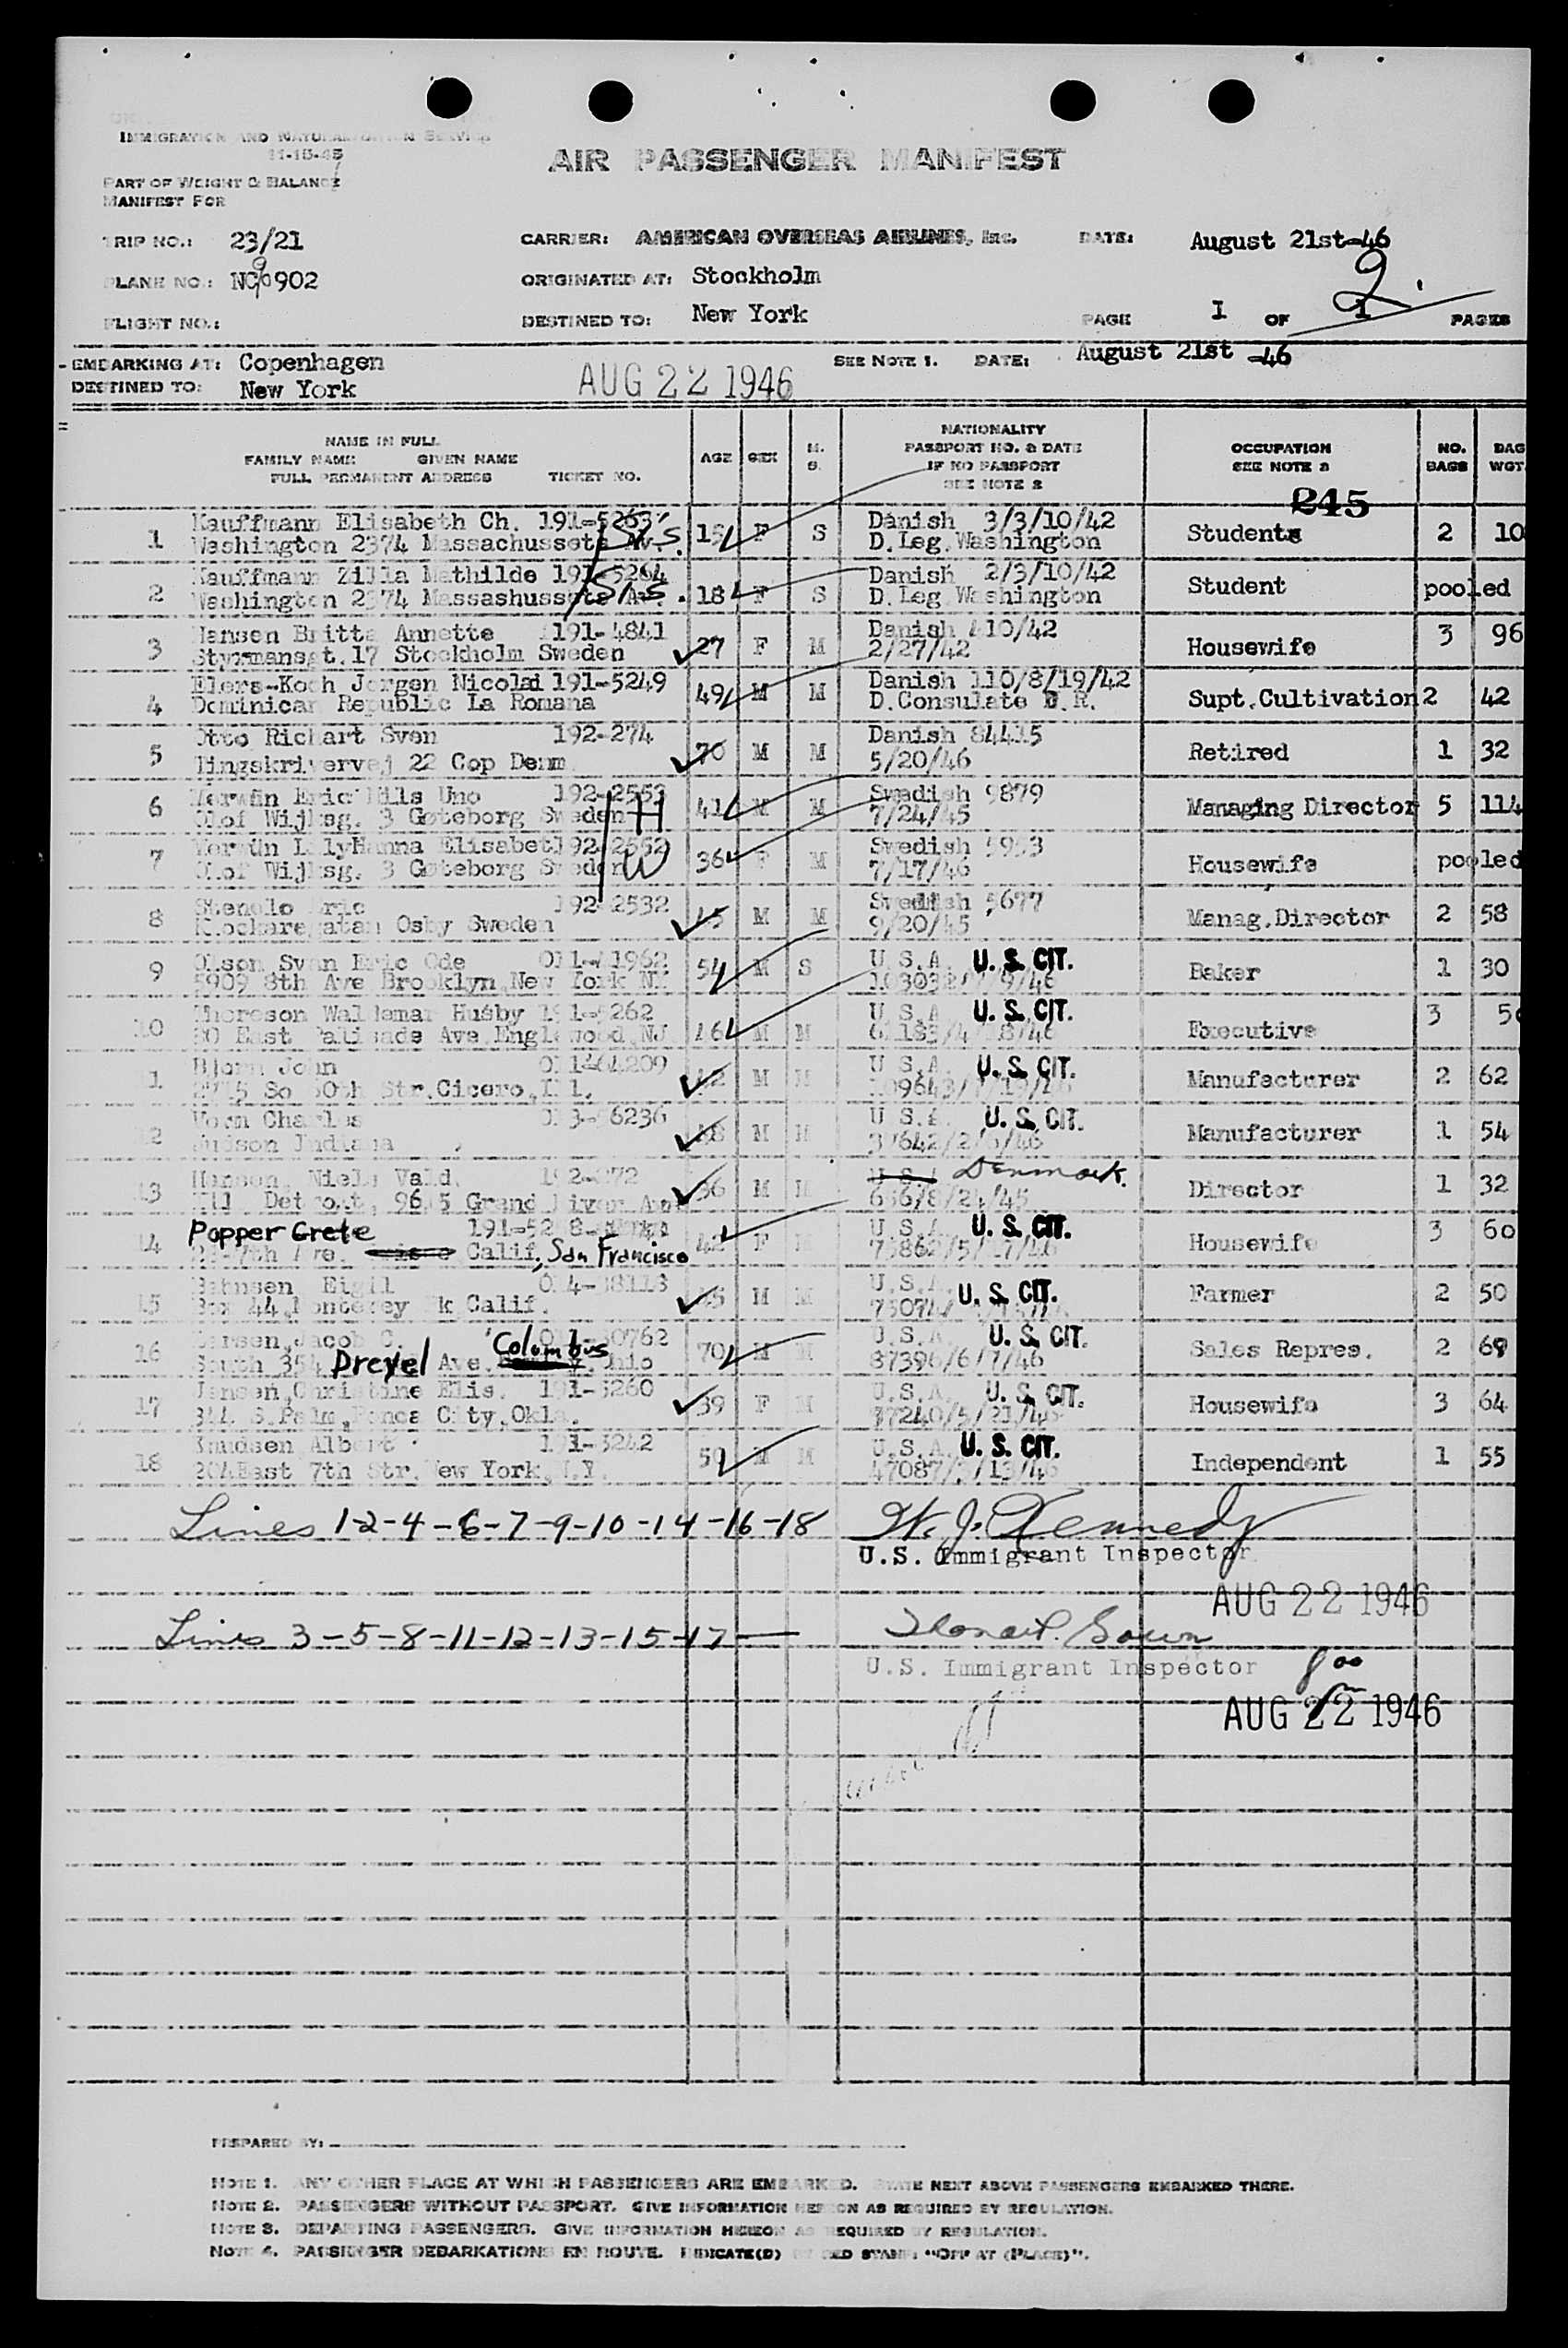 IMMIGRATION AND NATURALIZATION SERVICE
11-15-45
PART OF WEIGHT & BALANCE
MANIFEST FOR
AIR PASSENGER MANIFEST
TRIP NO.: 23/21 CARRIER: AMERICAN OVERSEAS AIRLINES, Inc. DATE: August 21st-46
PLANE NO.: NC90902 ORIGINATED AT: Stockholm
FLIGHT NO.: DESTINED TO: New York PAGE 1 OF 1 2. PAGES
EMBARKING AT: Copenhagen SEE NOTE 1. DATE: August 21st -46
DESTINED TO: New York AUG 22 1946
NAME IN FULL
FAMILY NAME GIVEN NAME
FULL PERMANENT ADDRESS TICKET NO.
AGE SEX M. S.
NATIONALITY
PASSPORT NO. & DATE
IF NO PASSPORT
SEE NOTE 2
OCCUPATION
SEE NOTE 2
NO. BAGS
BAG WGT.
245
1 Kauffmann Elisabeth Ch. 191-5263 15 F S Danish 3/3/10/42 Students 2 10
Washington 2374 Massachussets Av. Sis. D.Leg.Washington
2 Kauffmann Zilla Mathilde 191-5264 18 F S Danish 2/3/10/42 Student pooled
Washington 2374 Massashussets Av. Sis. D.Leg Washington
3 Hansen Britta Annette 191-4841 27 F M Danish 410/42 Housewife 3 96
Styrmansgt.17 Stockholm Sweden 2/27/42
4 Elers-Koch Jorgen Nicolai 191-5249 49 M M Danish 110/8/19/42 Supt.Cultivation 2 42
Dominican Republic La Romana D.Consulate D.R.
5 Otto Richart Sven 192-274 70 M M Danish 84415 Retired 1 32
Tingskrivervej 22 Cop Denm 5/20/46
6 Eric Nils Uno 192-2553 41 M M Swedish 9879 Managing Director 5 114
Olof Wijksg. 3 Gøteborg Sweden H 7/24/45
7 LilyHanna Elisabet 192-2552 36 F M Swedish 5953 Housewife pooled
Olof Wijksg. 3 Gøteborg Sweden W 7/17/46
8 Stenolo Eric 192 2532 45 M M Swedish 5677 Manag.Director 2 58
Klockaregatan Osby Sweden 9/20/45
9 Olson Sven Eric Ode 011-41962 54 M S U.S.A. U. S. CIT. Baker 1 30
5909 8th Ave Brooklyn,New York NY
10 Thoreson Waldemar Husby 191-5262 46 M M U.S.A. U. S. CIT. Executive 3
80 East Palisade Ave Englewood NJ
11 Bjorn John 42 M M U.S.A. U. S. CIT. Manufacturer 2 62
So 50th Str.Cicero,Ill.
12 Worm Charles M M U.S.A. U. S. CIT. Manufacturer 1 54
Judson Indiana
13 Hanson, Niels Vald. 36 M M U.S.A. Denmark. Director 1 32
Detroit, Grand River Ave
14 Popper Grete 42 F M U.S.A. U. S. CIT. Housewife 3 60
7th Ave. Calif, San Francisco
15 Bahnsen Eigil 45 M M U.S.A. U. S. CIT. Farmer 2 50
Box 44, Monterey Pk Calif.
16 Larsen, Jacob C. 70 M M U.S.A. U. S. CIT. Sales Repres. 2 69
South 354 Drexel Ave. Columbus Ohio 87396/6/7/46
17 Jensen, Christine Elis. 191-5260 39 F M U.S.A. U. S. CIT. Housewife 3 64
344 S.Palm, Ponca City, Okla. 37240/5/21/46
18 Knudsen Albert 191-5242 50 M M U.S.A. U. S. CIT. Independent 1 55
204East 7th Str.New York,N.Y.
Lines 1-2-4-6-7-9-10-14-16-18 W. J. Kennedy
U.S. Immigrant Inspector
AUG 22 1946
Lines 3-5-8-11-12-13-15-17
U.S. Immigrant Inspector
AUG 22 1946
PREPARED BY:
NOTE 1. ANY OTHER PLACE AT WHICH PASSENGERS ARE EMBARKED. STATE NEXT ABOVE PASSENGERS EMBARKED THERE.
NOTE 2. PASSENGERS WITHOUT PASSPORT. GIVE INFORMATION HEREON AS REQUIRED BY REGULATION.
NOTE 3. DEPARTING PASSENGERS. GIVE INFORMATION HEREON AS REQUIRED BY REGULATION.
NOTE 4. PASSENGER DEBARKATIONS EN ROUTE. INDICATE(D) BY RED STAMP: "OFF AT (PLACE)".